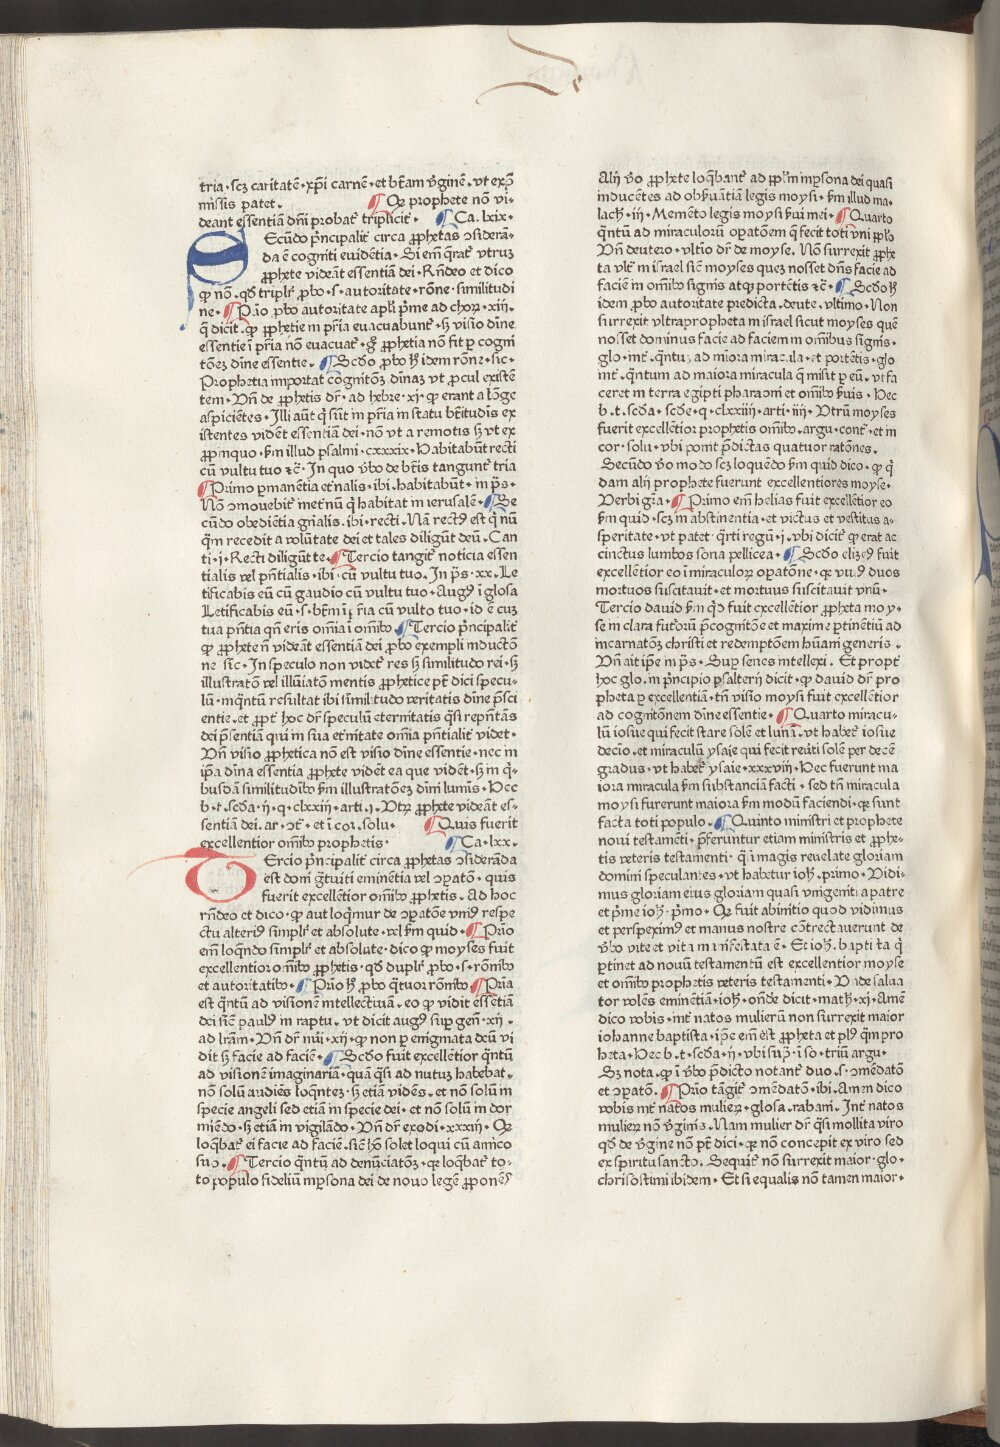 De
tria·scz caritatē·xp̄i carnē·et btām v̄ginē·vt exp̄
missis patet. ¶Qꝫ prophete nō vi-
deant essentiā dn̄i probat̄ tripliciť· ¶Ca·lxix·
Secūdo p̄ncipaliť circa ꝓphetas ↄsiderā-
da ē cogniti euidētia·Si em̄ q̄rat̄ vtruꝫ
ꝓphete videāt essentiā dei·Rn̄deo et dico
ꝙ nō·qd̓ tripľr ꝓbo·s·autoritate·rōne·similitudi
ne·¶Prīo ꝓbo autoritate apľi p̄me ad choꝝ·xiii·
q̄ dicit·ꝙ ꝓphetie in pr̄ia euacuabunt̄·sꝫ visio dīne
essentie ī pr̄ia nō euacuat̄·gͦ ꝓphetia nō fit ꝑ cogni
tōeꝫ dīne essentie·¶Scdo ꝓbo hͦ idem rōne·sic·
Prophetia importat cognitōeꝫ dīnaꝫ vt ꝓcul existē
tem·Vn̄ de ꝓphetis dr̄·ad hebre·xi·ꝙ erant a lōge
aspiciētes·Illi aūt q̄ sūt in pr̄ia in statu bt̄itudis ex
istentes vidēt essentiā dei·nō vt a remotis sꝫ vt ex
ꝓpinquo·ẜm illud psalmi·cxxxix·Habitabūt recti
cū vultu tuo ⁊c̄·In quo v̄bo de btīs tangunt̄ tria
¶Primo ꝑmanētia et̓nalis·ibi·habitabūt·in p̄s·
Nō ↄmouebit̄ inet̓nū q̄ habitat in ierusalē·¶Se
cūdo obediētia gn̄alis·ibi·recti·Nā rectꝰ est q̄ nū
q̄m recedit a volūtate dei et tales diligūt deū·Can
ti·i·Recti diligūt te·¶Tercio tangit̄ noticia essen
tialis vel pn̄tialis·ibi·cū vultu tuo·In p̄s·xx·Le
tificabis eū cū gaudio cū vultu tuo·Augꝰ ī glosa
Letificabis eū·s·bt̄m ī pr̄ia cū vulto tuo·id ē cuꝫ
tua pn̄tia qn̄ eris om̄ia ī om̄ibꝰ·¶Tercio p̄ncipaliť
ꝙ ꝓphete n̄ videāt essentiā dei ꝓbo exempli inductō
ne sic·In speculo non videt̄ res sꝫ similitudo rei·sꝫ
illustratō vel illūiatō mentis ꝓphetice pt̄ dici specu-
lū·inq̄ntū resultat ibi similitudo veritatis dīne p̄sci
entie·et ꝓpt̓ hoc dr̄ speculū eternitatis q̄si repn̄tās
dei p̄sentiā qui in sua et̓nitate om̄ia pn̄tialiť videt·
Vn̄ visio ꝓphetica nō est visio dīne essentie·nec in
ip̄a dīna essentia ꝓphete vidēt ea que vidēt·sꝫ in q̄-
busdā similitudībꝰ ẜm illustratōeꝫ diuī lumīs·Hec
b·t·scd̓a·ii·q·clxxiii·arti·i·Vtꝝ ꝓphete videāt es-
sentiā dei·ar·ↄt̄·et ī cor·solu· ¶Quis fuerit
excellentior om̄ibꝰ prophetis· ¶Ca·lxx·
Tercio p̄ncipaliť circa ꝓphetas ↄsiderāda
est dom̄ g̓tuiti eminētia vel ↄꝑatō·quis
fuerit excellētior om̄ibꝰ ꝓphetis·Ad hoc
rn̄deo et dico·ꝙ aut loq̄mur de ↄꝑatōe vniꝰ respe
ctu alteriꝰ simpľr et absolute·vel ẜm quid·¶Prīo
em̄ loq̄ndo simpľr et absolute·dico ꝙ moyses fuit
excellentior om̄ibꝰ ꝓphetis·qd̓ dupľr ꝓbo·s·rōnibꝰ
et autoritatibꝰ·¶Prīo hͦ ꝓbo q̄tuor rōnibꝰ ¶Prīa
est q̄ntū ad visionē intellectiuā·eo ꝙ vidit essētiā
dei sic̄ paulꝰ in raptu·vt dicit augꝰ suꝑ gen̄·xii·
ad lrām·Vn̄ dr̄ nūi·xii·ꝙ non ꝑ enigmata deū vi
dit sꝫ facie ad faciē·¶Scdo fuit excellētior q̄ntū
ad visionē imaginariā·quā q̄si ad nutuꝫ habebat·
nō solū audiēs loq̄nteꝫ·sꝫ etiā vidēs·et nō solū in
specie angeli sed etiā in specie dei·et nō solū in dor
miēdo·sꝫ etiā in vigilādo·Vn̄ dr̄ exodi·xxxiii·Qꝫ
loq̄bat̄ ei facie ad faciē·sic̄ hō solet loqui cū amico
suo·¶Tercio q̄ntū ad denūciatōꝫ·ꝙ loq̄bat̄ to-
to populo fideliū in ꝑsona dei de nouo legē ꝓponēs
Alij v̓o ꝓphete loq̄bant̄ ad ppľm in ꝑsona dei quasi
inducētes ad obẜuātiā legis moysi·ẜm illud ma-
lach·iii·Memēto legis moysi ẜui mei·¶Quarto
q̄ntū ad miraculoꝝ oꝑatōem q̄ fecit toti vni ppľo
Vn̄ deutero·vltīo dr̄ de moyse·Nō surrexit ꝓphe
ta vľt̄ in israel sic̄ moyses quez nosset dn̄s facie ad
faciē in om̄ibꝰ signis atqꝫ portētis ⁊c̄·¶Scdo hͦ
idem ꝓbo autoritate predicta·deute·vltimo·Non
surrexit vltra propheta in israel sicut moyses quē
nosset dominus facie ad faciem in om̄ibus signis·
glo·int̓·q̄ntuꝫ ad miora miracula·et portētis·glo
int̓·q̄ntum ad maiora miracula q̄ misit ꝑ eū·vt fa
ceret in terra egipti pharaoni et om̄ibꝰ ẜuis·Hec
b·t·scd̓a·scd̓e·q·clxxiiii·arti·iiii·Vtrū moyses
fuerit excellētior prophetis om̄ibꝰ·argu·cont̄·et in
cor·solu·vbi ponit p̄dictas quatuor ratōnes·
Secūdo v̓o modo scꝫ loquēdo ẜm quid dico·ꝙ q̄
dam alij prophete fuerūt excellentiores moyse·
Verbi gr̄a·¶Primo em̄ helias fuit excellētior eo
ẜm quid·scꝫ in abstinentia·et victus et vestitus a-
speritate·vt patet·q̄rti regū·i·vbi diciť ꝙ erat ac
cinctus lumbos sona pellicea·¶Scdo elizeꝰ fuit
excellētior eo ī miraculoꝝ oꝑatōne·ꝙ viuꝰ duos
mortuos suscitauit·et mortuus suscitauit vnū·
Tercio dauid ẜm qd̓ fuit excellētior ꝓpheta moy-
se in clara futuroꝝ p̄cognitōe et maxime ꝑtinētiū ad
incarnatōꝫ christi et redemptōem hūani generis·
Vn̄ ait ip̄e in p̄s·Suꝑ senes intellexi·Et propt̓
hoc glo·in p̄ncipio psalterij dicit·ꝙ dauid dr̄ pro
pheta ꝑ excellentiā·tn̄ visio moysi fuit excellētior
ad cognitōnem dīne essentie·¶Quarto miracu-
lū iosue qui fecit stare solē et lunā·vt habeť iosue
decīo·et miraculū ysaie qui fecit reūti solē per decē
gradus·vt habeť ysaie·xxxviii·Hec fuerunt ma
iora miracula ẜm substanciā facti·sed tn̄ miracula
moysi fuerunt maiora ẜm modū faciendi·ꝙ sunt
facta toti populo·¶Quinto ministri et prophete
noui testamēti·p̄feruntur etiam ministris et ꝓphe-
tis veteris testamenti·q̄ ī magis reuelate gloriam
domini speculantes·vt habetur ioh·primo·Vidi-
mus gloriam eius gloriam quasi vnigeniti a patre
et p̄me ioh·p̄mo·Qꝫ fuit ab initio quod vidimus
et perspeximꝰ et manus nostre cōtrectauerunt de
v̓bo vite et vita manifestata ē·Et ioh·baptista q̄
ꝑtinet ad nouū testamentū est excellentior moyse
et om̄ibꝰ prophetis veteris testamenti·Vnde salua
tor volēs eminētiā·ioh·ōnde dicit·math·xi·Amē
dico vobis·int̓ natos mulierū non surrexit maior
iohanne baptista·ip̄e em̄ est ꝓpheta et plꝰ q̄m pro
heta·Hec b·t·scd̓a·ii·vbi sup̄·ī so·triū argu·
Sꝫ nota·ꝙ ī v̓bo p̄dicto notant̄ duo·s·ↄmēdatō
et ↄꝑatō·¶Prīo tāgit̄ ↄmēdatō·ibi·Amen dico
vobis int̓ natos mulieꝝ·glosa·rabani·Int̓ natos
mulieꝝ nō v̓ginis·Nam mulier dr̄ q̄si mollita viro
qd̓ de v̓gine nō pt̄ dici·ꝙ nō concepit ex viro sed
ex spiritu sancto·Sequiť nō surrexit maior·glo·
chrisostimi ibidem·Et si equalis nō tamen maior·